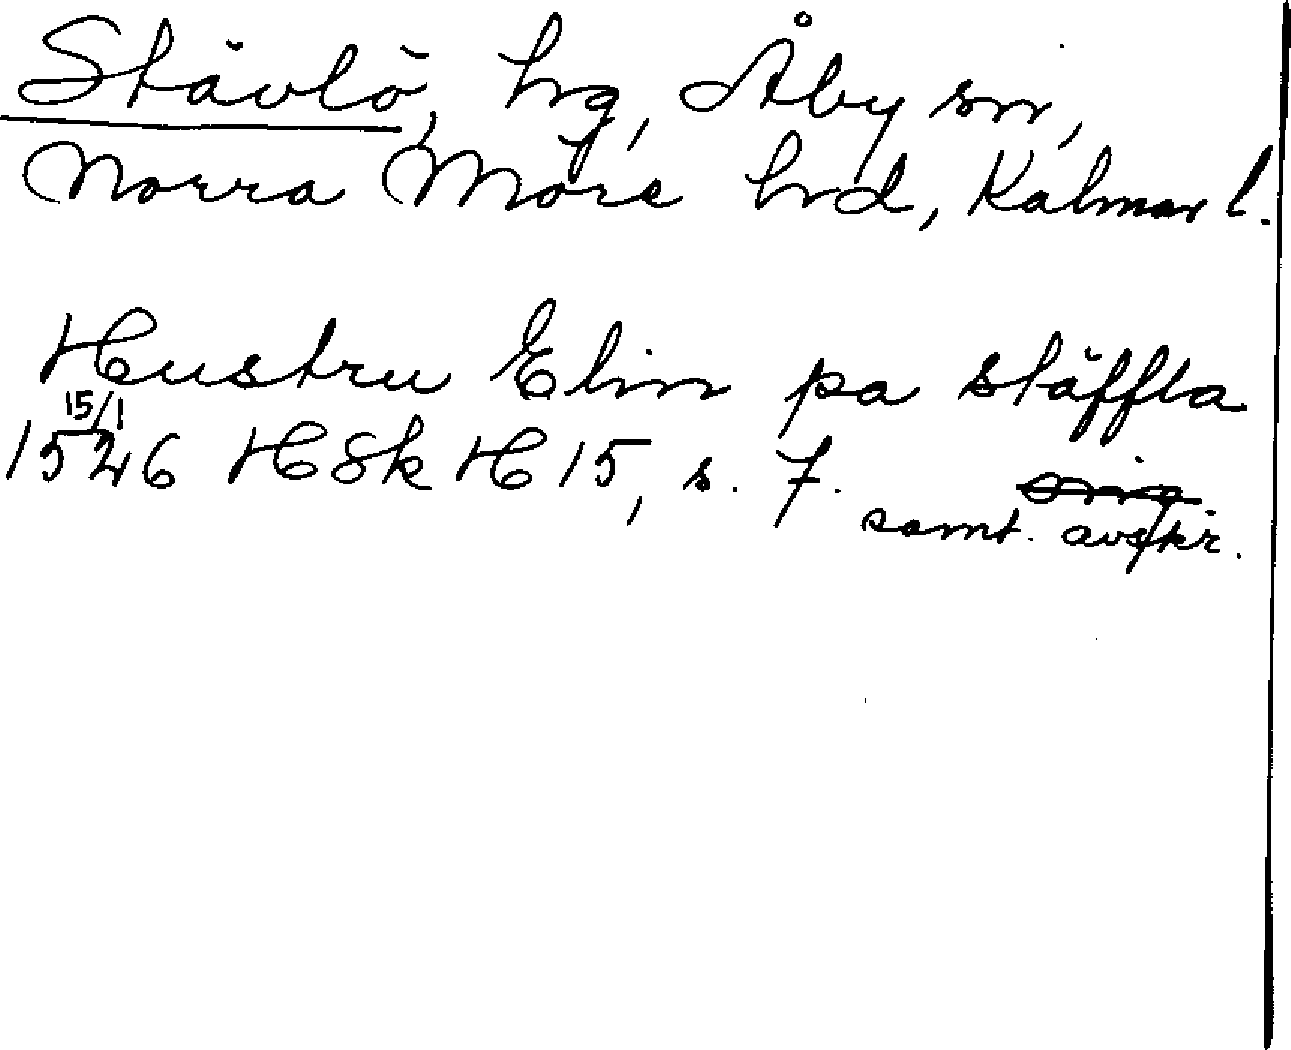 Stävlö, hg, Åby sn,
Norra Möre hrd, Kalmar l.
Hustru Elin pa stäffla
15/1
1526 HSk H 15, s. 7.
samt. avskr.